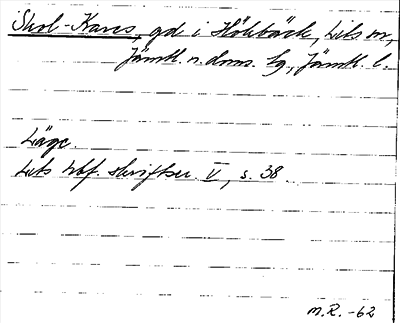 Skol-Kares, gd i Hökbäck, Lits sn,
Jämtl. n. doms. tg., Jämtl. l.
Läge.
Lits hbf. skriftser. V, s. 38
M.R. -62